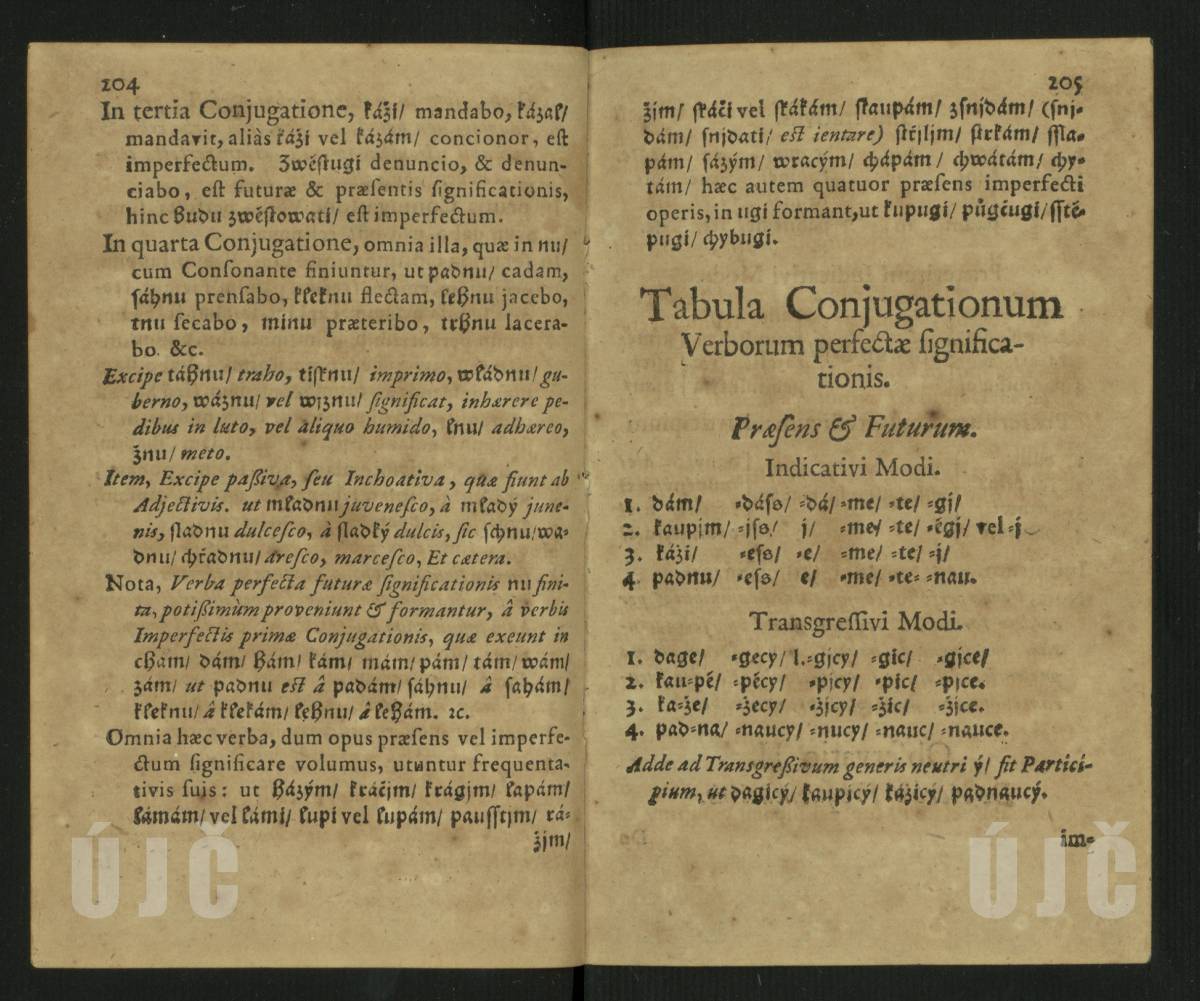 204
In tertia Conjugatione, káži/ mandabo, kázal/
mandavit, aliàs káži vel kázám/ concionor, est
imperfectum. Zwěstugi denuncio, & denun-
ciabo, est futuræ & præsentis significationis,
hinc Budu zwěstowati/ est imperfectum.
In quarta Conjugatione, omnia illa, quæ in nu/
cum Consonante finiuntur, ut padnu/ cadam,
sáhnu prensabo, kleknu flectam, lehnu jacebo,
tnu secabo, minu præteribo, trhnu lacera-
bo. &c.
Excipe táhnu/ traho, tisknu/ imprimo, wládnu/ gu-
berno, wáznu/ vel wjznu/ significat, inhærere pe-
dibus in luto, vel aliquo humido, lnu/ adhæreo,
žnu/ meto.
Item, Excipe passiva, seu Inchoativa, quæ fiunt ab
Adjectivis. ut mladnu juvenesco, à mladý juve-
nis, sladnu dulcesco, à sladký dulcis, sic schnu/ wa-
dnu/ chřadnu/ aresco, marcesco, Et cætera.
Nota, Verba perfecta futuræ significationis nu fini-
ta, potissimùm proveniunt & formantur, â verbis
Imperfectis primæ Conjugationis, quæ exeunt in
cham/ dám/ hám/ kám/ mám/ pám/ tám/ wám/
zám/ ut padnu est â padám/ sáhnu/ â sahám/
kleknu/ â klekám/ lehnu/ â lehám. ꝛc.
Omnia hæc verba, dum opus præsens vel imperfe-
ctum significare volumus, utuntur frequenta-
tivis suis: ut házým/ kráčjm/ krágjm/ lapám/
lámám/ vel lámi/ lupi vel lupám/ pausstjm/ rá-
žjm/
205
žjm/ skáči vel skákám/ staupám/ zsnjdám/ (snj-
dám/ snjdati/ est ientare) střjljm/ strkám/ ssla-
pám/ sázým/ wracým/ chápám/ chwátám/ chy-
tám/ hæc autem quatuor præsens imperfecti
operis, in ugi formant, ut kupugi/ půgčugi/ sstě-
pugi/ chybugi.
Tabula Conjugationum
Verborum perfectæ significa-
tionis.
Præsens & Futurum.
Indicativi Modi.
1. dám/ -dáss/ -dá/ -me/ -te/ -gj/
2. kaupjm/ -jss/ j/ -me/ -te/ -ěgj/ vel -j
3. káži/ -ess/ -e/ -me/ -te/ -j/
4. padnu/ -ess/ e/ -me/ -te- -nau.
Transgressivi Modi.
1. dage/ -gecy/ l. -gjcy/ -gic/ -gjce/
2. kau-pě/ -pěcy/ -pjcy/ -pic/ -pjce.
3. ka-že/ -žecy/ -žjcy/ -žic/ -žjce.
4. pad-na/ -naucy/ -nucy/ -nauc/ -nauce.
Adde ad Transgressivum generis neutri ý/ fit Partici-
pium, ut dagicý/ kaupjcý/ kážicý/ padnaucý.
im-
ÚJČ
ÚJČ